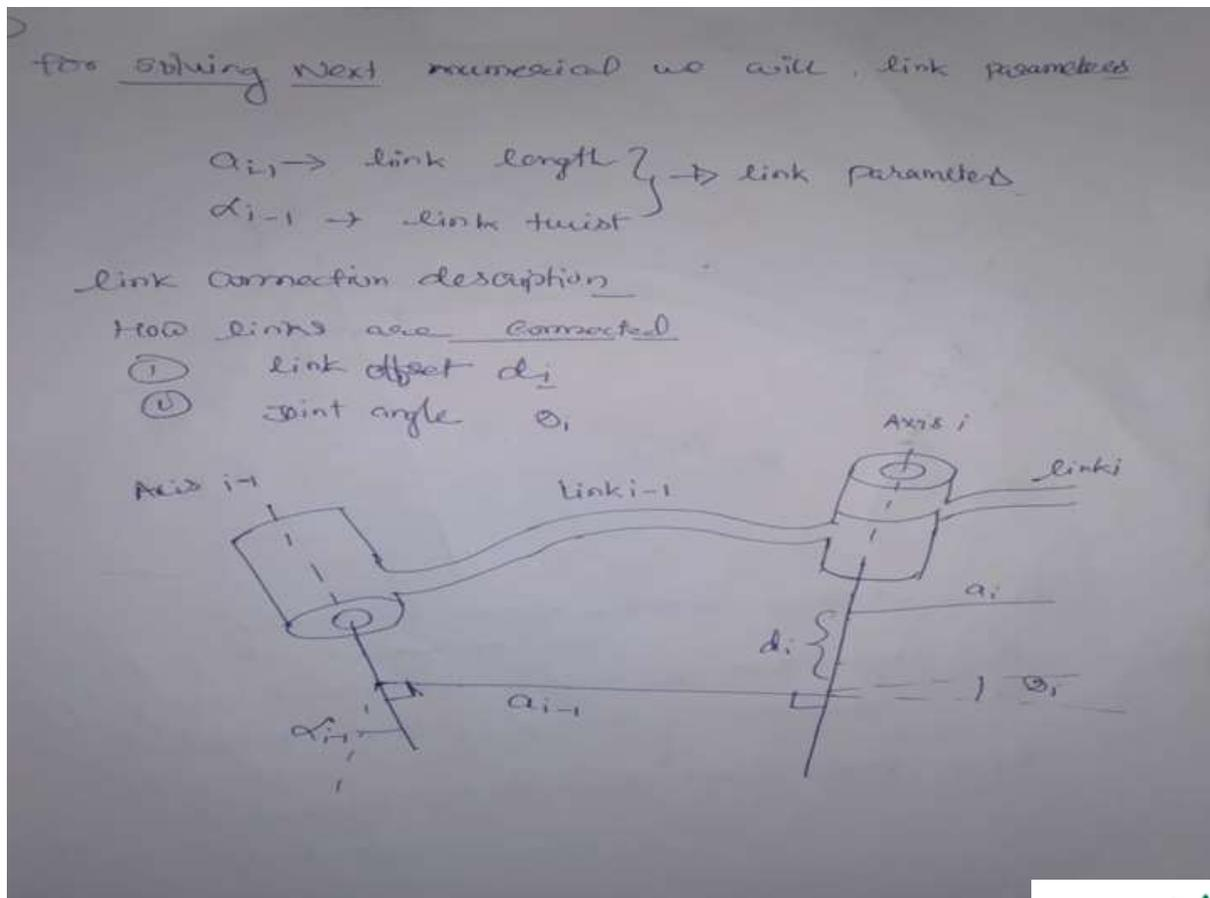 for solving Next numerical we will, link parameters
a i-1 → link length } → link parameters
α i-1 → link twist
link connection description
How links are connected
① link offset di
② Joint angle θi
Axis i
Axis i-1
Link i-1
link i
ai
di
ai-1
θi
αi-1